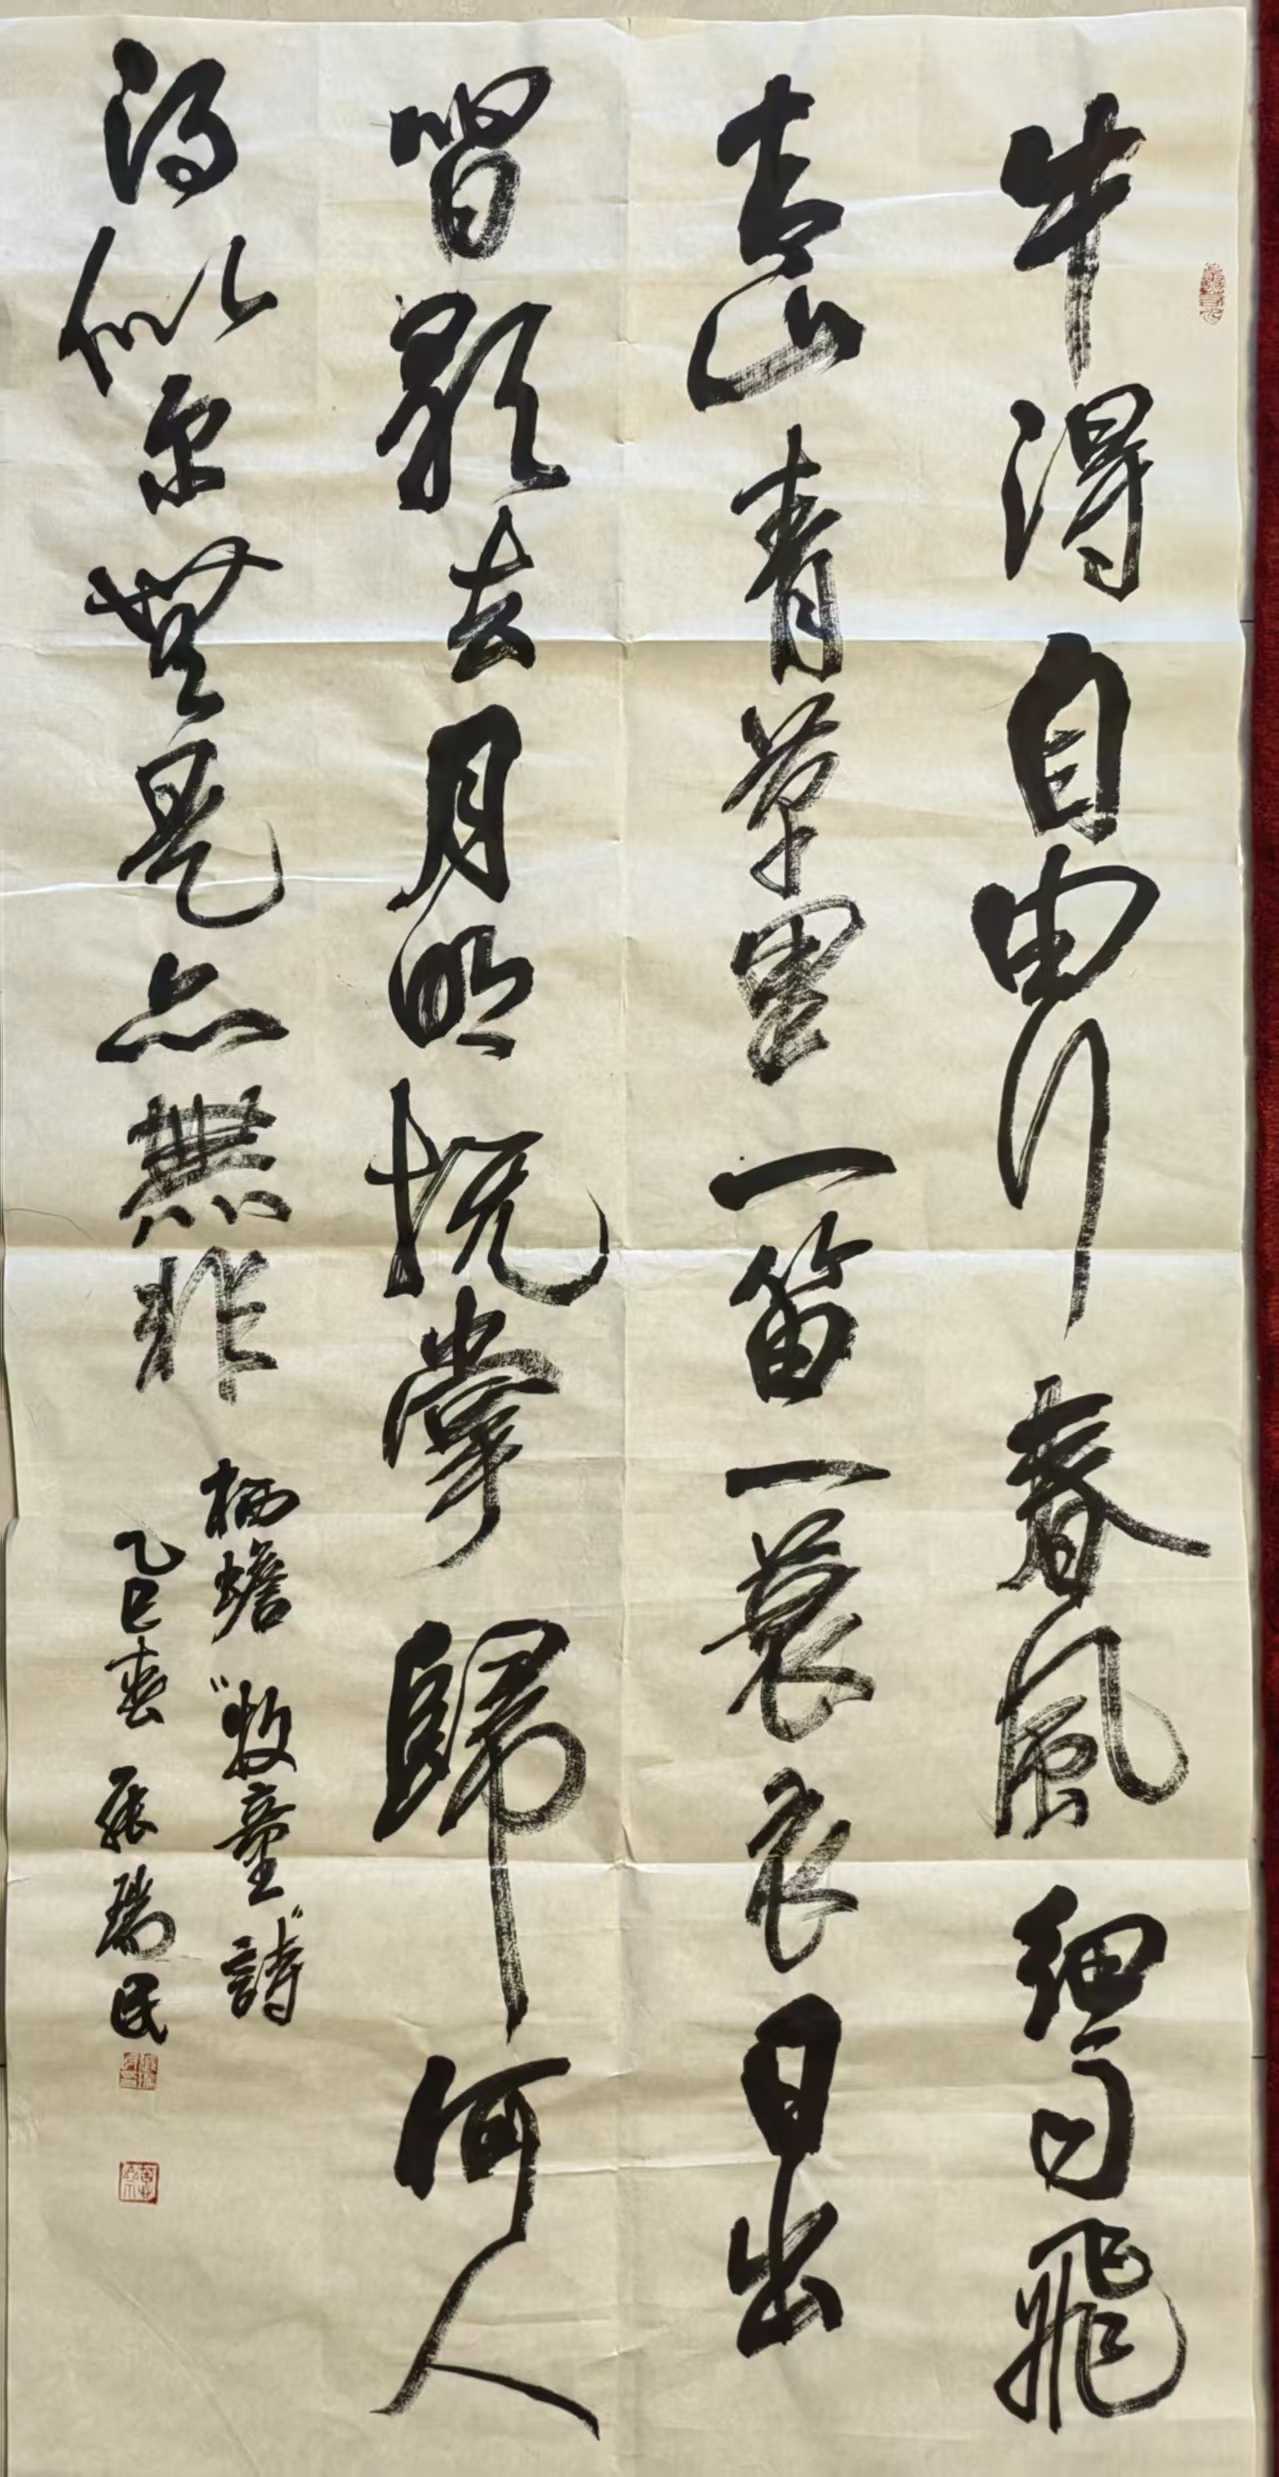 牛得自由行春風細雨飛
青山青草里一笛一蓑衣日出
唱歌去月明抚掌歸何人
得似尔無是亦無非
栖蟾"牧童"詩
乙巳春 張瑞民